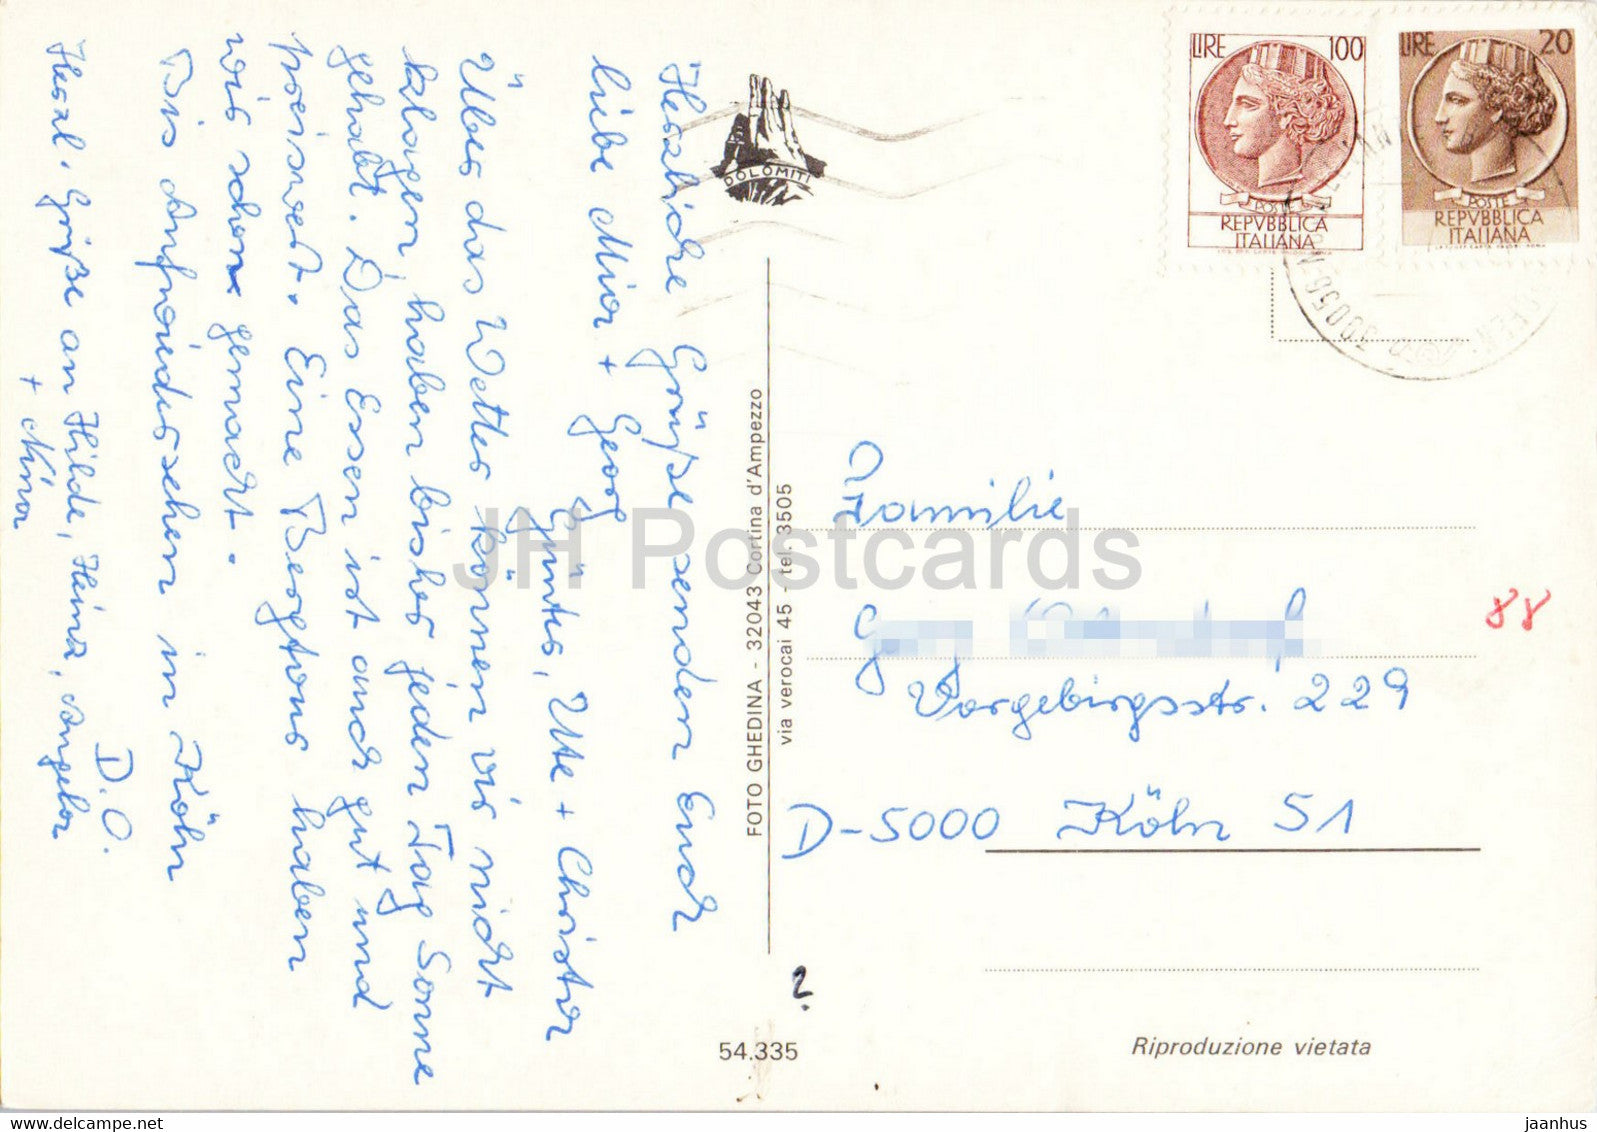 Herzliche Grüße senden Euch
liebe Mia + Georg
Günter, Ute + Christa
Über das Wetter können wir nicht
klagen, haben bisher jeden Tag Sonne
gehabt. Das Essen ist auch gut und
preiswert. Eine Bergtour haben
wir schon gemacht.
Bis Aufwiedersehen in Köln
D.O.
Herzl. Grüße an Hilde, Heina, Angela
+ Nina
DOLOMITI
FOTO GHEDINA - 32043 Cortina d'Ampezzo
via verocai 45 - tel. 3505
54.335
?
LIRE 100
POSTE
REPVBBLICA
ITALIANA
LIRE 20
POSTE
REPVBBLICA
ITALIANA
Familie
Vorgebirgsstr. 229
D-5000 Köln 51
88
Riproduzione vietata
JH Postcards
www.delcampe.net
jaanhus